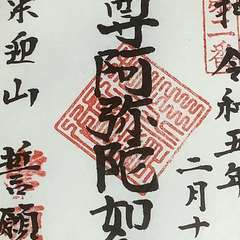 一番
令和五年
二月十
尊阿弥陀如
来迎山
誓願